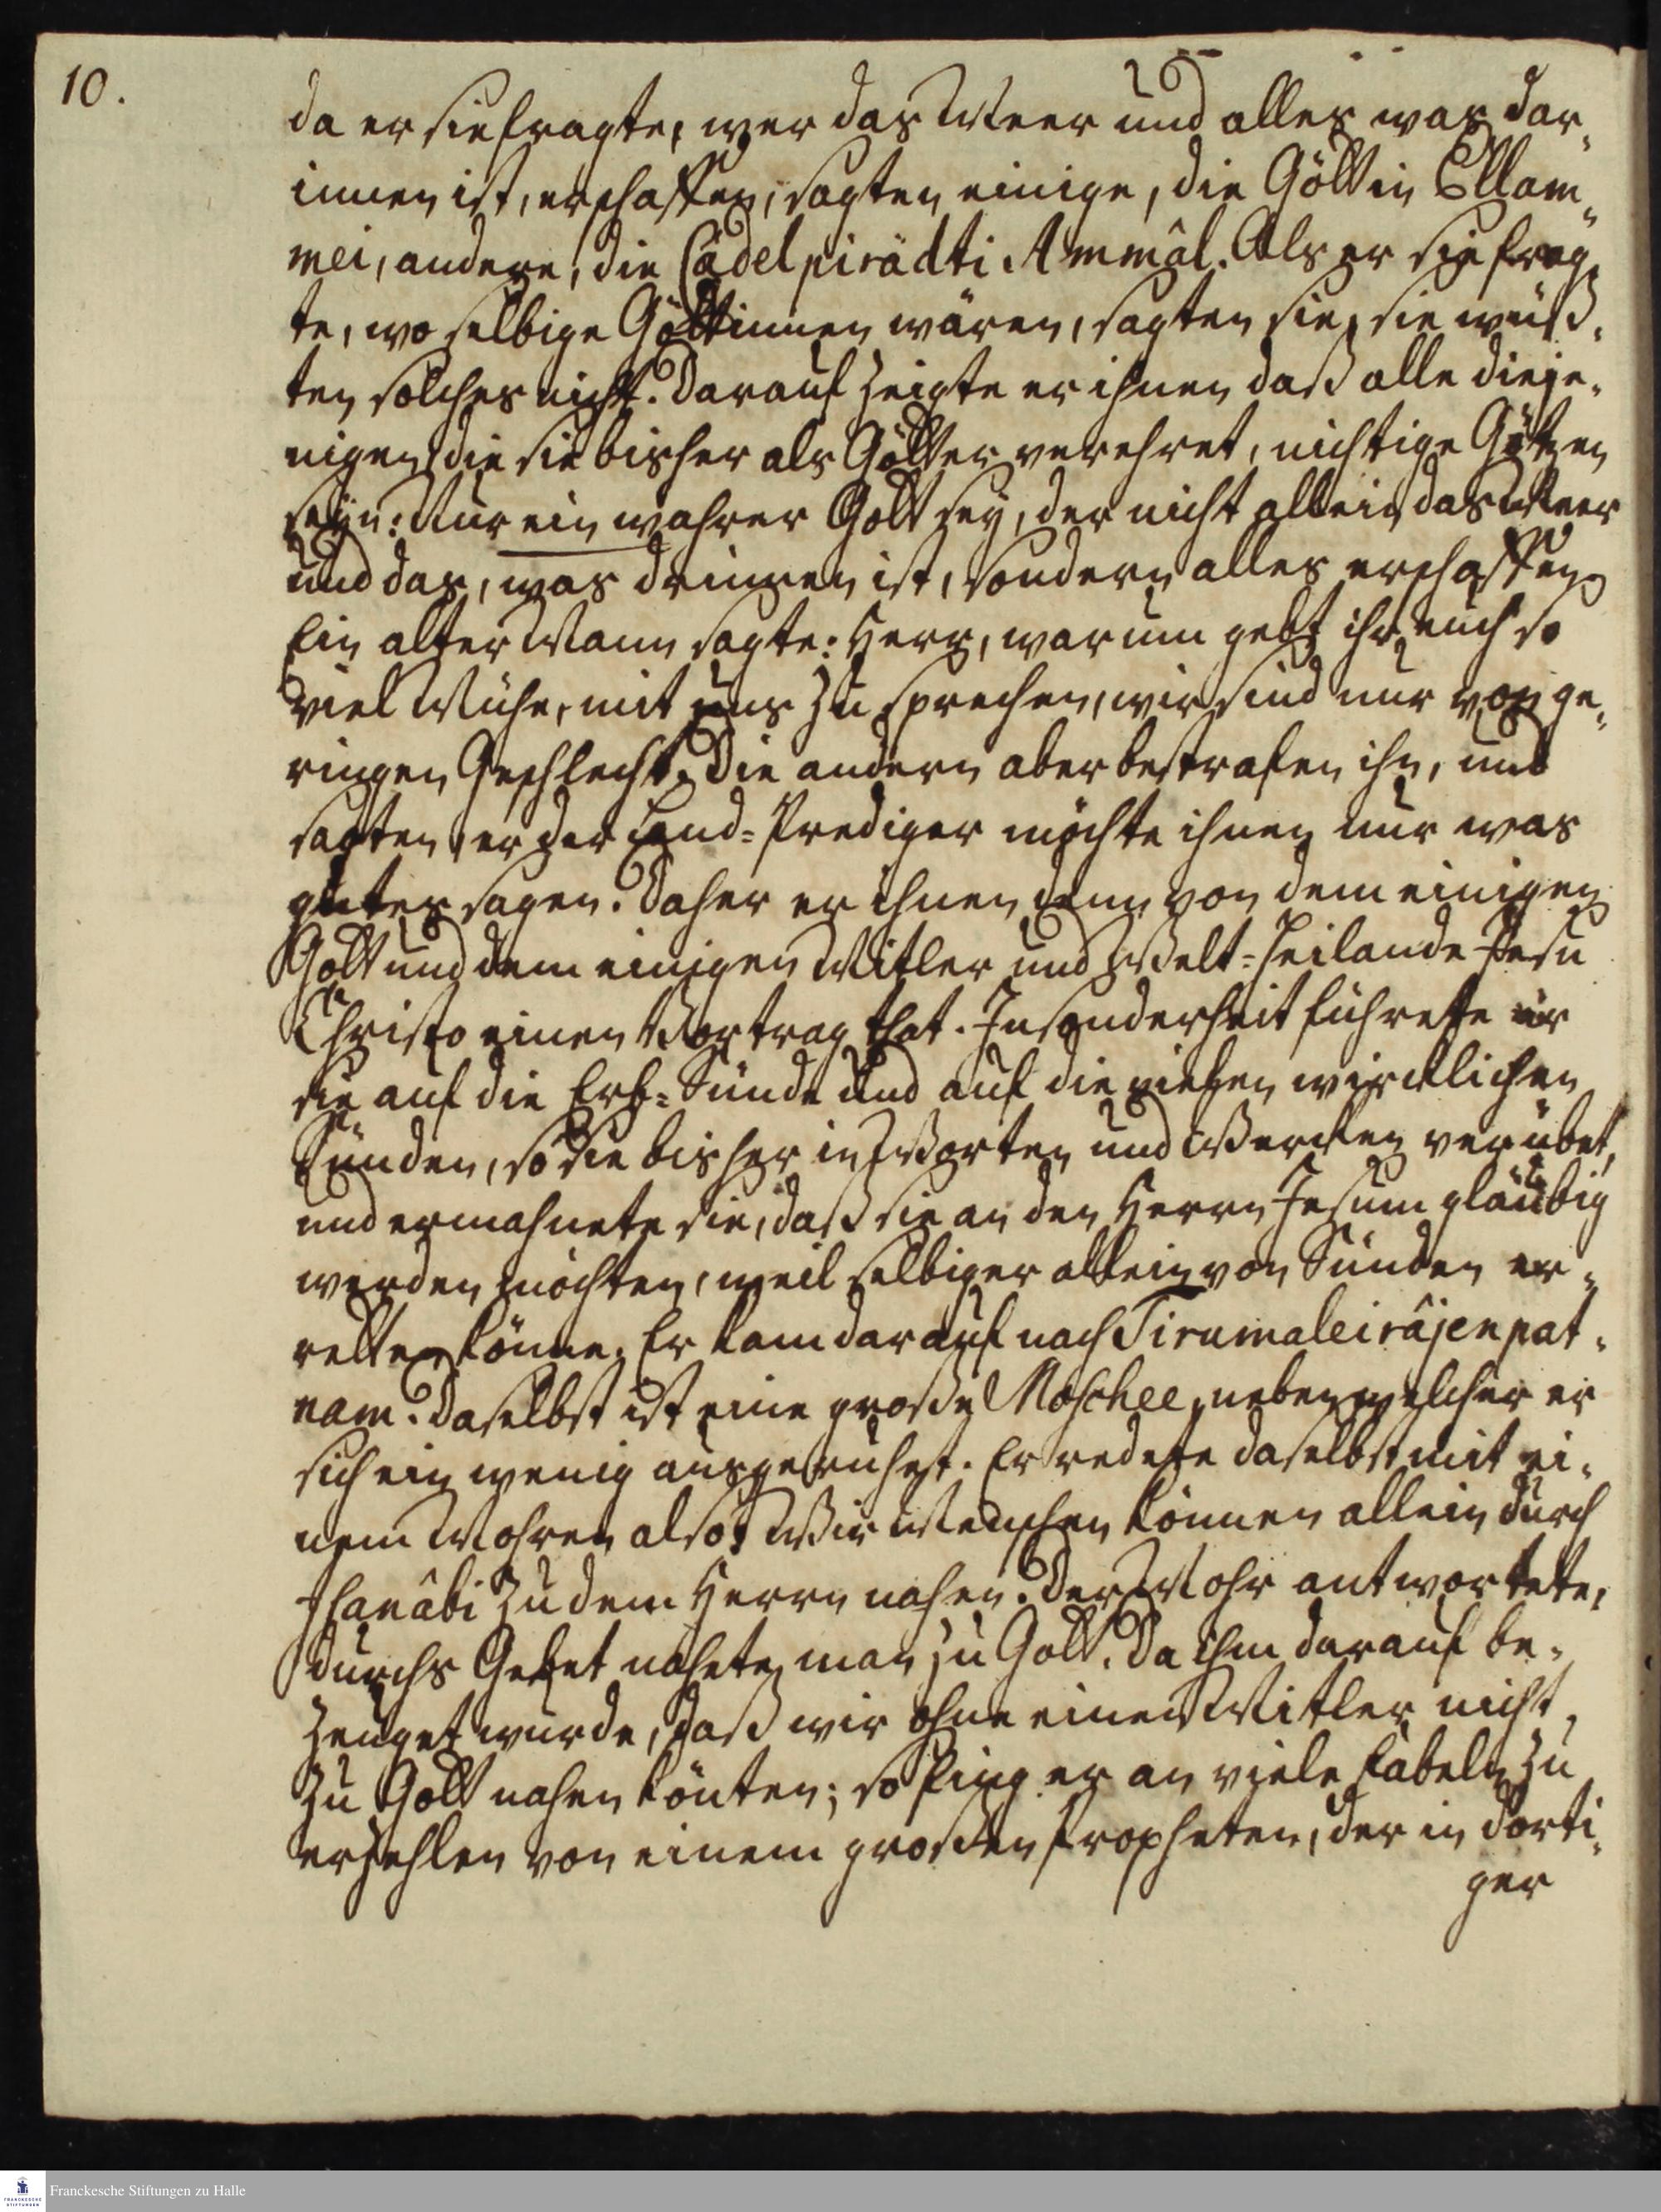 10.
da er sie fragte, wer das Meer und alles was dar„
innen ist, erschaffen, sagten einige, die Göttin Ellam„
mei, andere, die Cadelpirädti Ammâl. Als er sie frag„
te, wo selbige Göttinnen wären, sagten sie, sie wüß„
ten solches nicht. Darauf zeigte er ihnen daß alle dieje„
nigen die sie bisher als Götter verehret, nichtige Götzen
seyn: Nur ein wahrer Gott sey, der nicht allein das Meer
und das, was drinnen ist, sondern alles erschaffen.
Ein alter Mann sagte: Herr, warum gebt ihr euch so
viel Mühe, mit uns zu sprechen, wir sind nur von ge„
ringen Geschlecht. Die andern aber bestrafen ihn, und
sagten, er der Land=Prediger möchte ihnen nur was
gutes sagen. Daher er ihnen denn von dem einigen
Gott und dem einigen Mitler und Welt=Heilande Jesu
Christo einen Vortrag that. Insonderheit führete er
sie auf die Erb=Sünde und auf die vielen wircklichen
Sünden, so sie bisher in Worten und Wercken verübet,
und ermahnete sie, daß sie an den Herrn Jesum gläubig
werden möchten, weil selbiger allein von Sünden er„
retten könne. Er kam darauf nach Tirumaleirâjenpat„
nam. Daselbst ist eine große Moschee, neben welcher er
sich ein wenig ausgeruhet. Er redete daselbst mit ei„
nem Mohren also: Wir Menschen können allein durch
Isanâbi zu dem Herrn nahen. Der Mohr antwortete,
durchs Gebet nahete man zu Gott. Da ihm darauf be„
zeuget wurde, daß wir ohne einen Mitler nicht
zu Gott nahen könten; so fing er an viele Fabeln zu
erzehlen von einem großen Propheten, der in dorti„
ger
Franckesche Stiftungen zu Halle
FRANCKESCHE
STIFTUNGEN